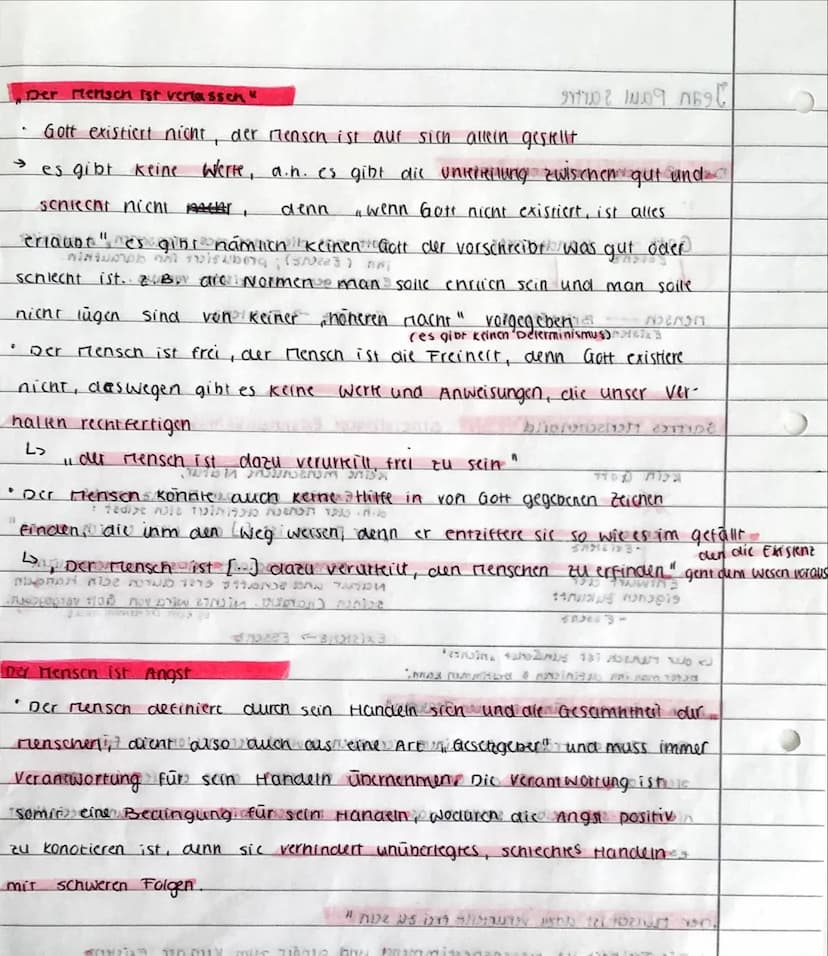 „Der Mensch ist verlassen"
· Gott existiert nicht, der Mensch ist auf sich allein gestellt
→ es gibt keine Werte, d.h. es gibt die Unterteilung zwischen gut und
schlecht nicht, denn „wenn Gott nicht existiert, ist alles
erlaubt", es gibt nämlich keinen Gott der vorschreibt was gut oder
schlecht ist. z.B. die Normen man solle ehrlich sein und man solle
nicht lügen sind von keiner „höheren Macht" vorgegeben
(es gibt keinen Determinismus)
· Der Mensch ist frei, der Mensch ist die Freiheit, denn Gott existiere
nicht, deswegen gibt es keine Werte und Anweisungen, die unser Ver-
halten rechtfertigen
↳ „der Mensch ist dazu verurteilt, frei zu sein"
· Der Mensch könnte auch keine Hilfe in von Gott gegebenen Zeichen
finden, die ihm den Weg weisen, denn er entziffere sie so wie es im gefällt
↳ „Der Mensch ist [...] dazu verurteilt, den Menschen zu erfinden"
den die Existenz
geht dem Wesen voraus
Der Mensch ist Angst
· Der Mensch definiert durch sein Handeln sich und die Gesamtheit der
Menschen, dient also auch als eine Art „Gesetzgeber" und muss immer
Verantwortung für sein Handeln übernehmen. Die Verantwortung ist
somit eine Bedingung für sein Handeln, wodurch die Angst positiv
zu konotieren ist, denn sie verhindert unüberlegtes, schlechtes Handeln
mit schweren Folgen.